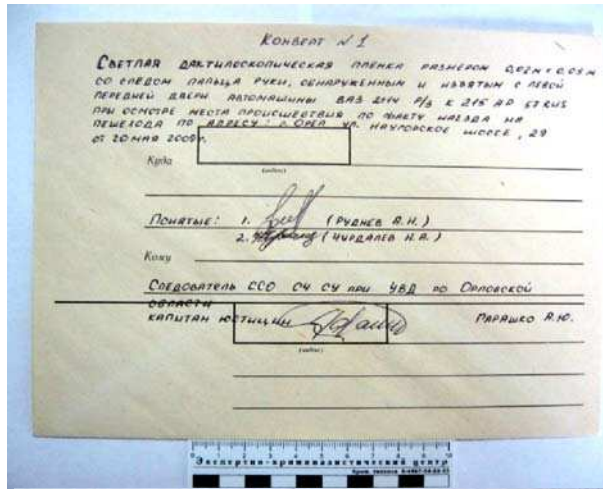 КОНВЕРТ N 1
СВЕТЛАЯ ДАКТИЛОСКОПИЧЕСКАЯ ПЛЕНКА РАЗМЕРОМ 0,02М × 0,05М
СО СЛЕДОМ ПАЛЬЦА РУКИ, ОБНАРУЖЕННЫМ И ИЗЪЯТЫМ С ЛЕВОЙ
ПЕРЕДНЕЙ ДВЕРИ АВТОМАШИНЫ ВАЗ 2114 Р/З К 215 АР 57 RUS
ПРИ ОСМОТРЕ МЕСТА ПРОИСШЕСТВИЯ ПО ФАКТУ НАЕЗДА НА
ПЕШЕХОДА ПО АДРЕСУ: г. ОРЕЛ УЛ. НАУГОРСКОЕ ШОССЕ, 29
ОТ 20 МАЯ 2009г.
Куда
(подпис)
ПОНЯТЫЕ: 1. (РУДНЕВ А.Н.)
2. (ЧУРДАЛЕВ Н.А.)
Кому
СЛЕДОВАТЕЛЬ ССО СЧ СУ ПРИ УВД ПО ОРЛОВСКОЙ
ОБЛАСТИ
КАПИТАН ЮСТИЦИИ ПАРАШКО А.Ю.
(подпис)
0 1 2 3 4 5 6 7 8 9 10
Экспертно-криминалистический центр